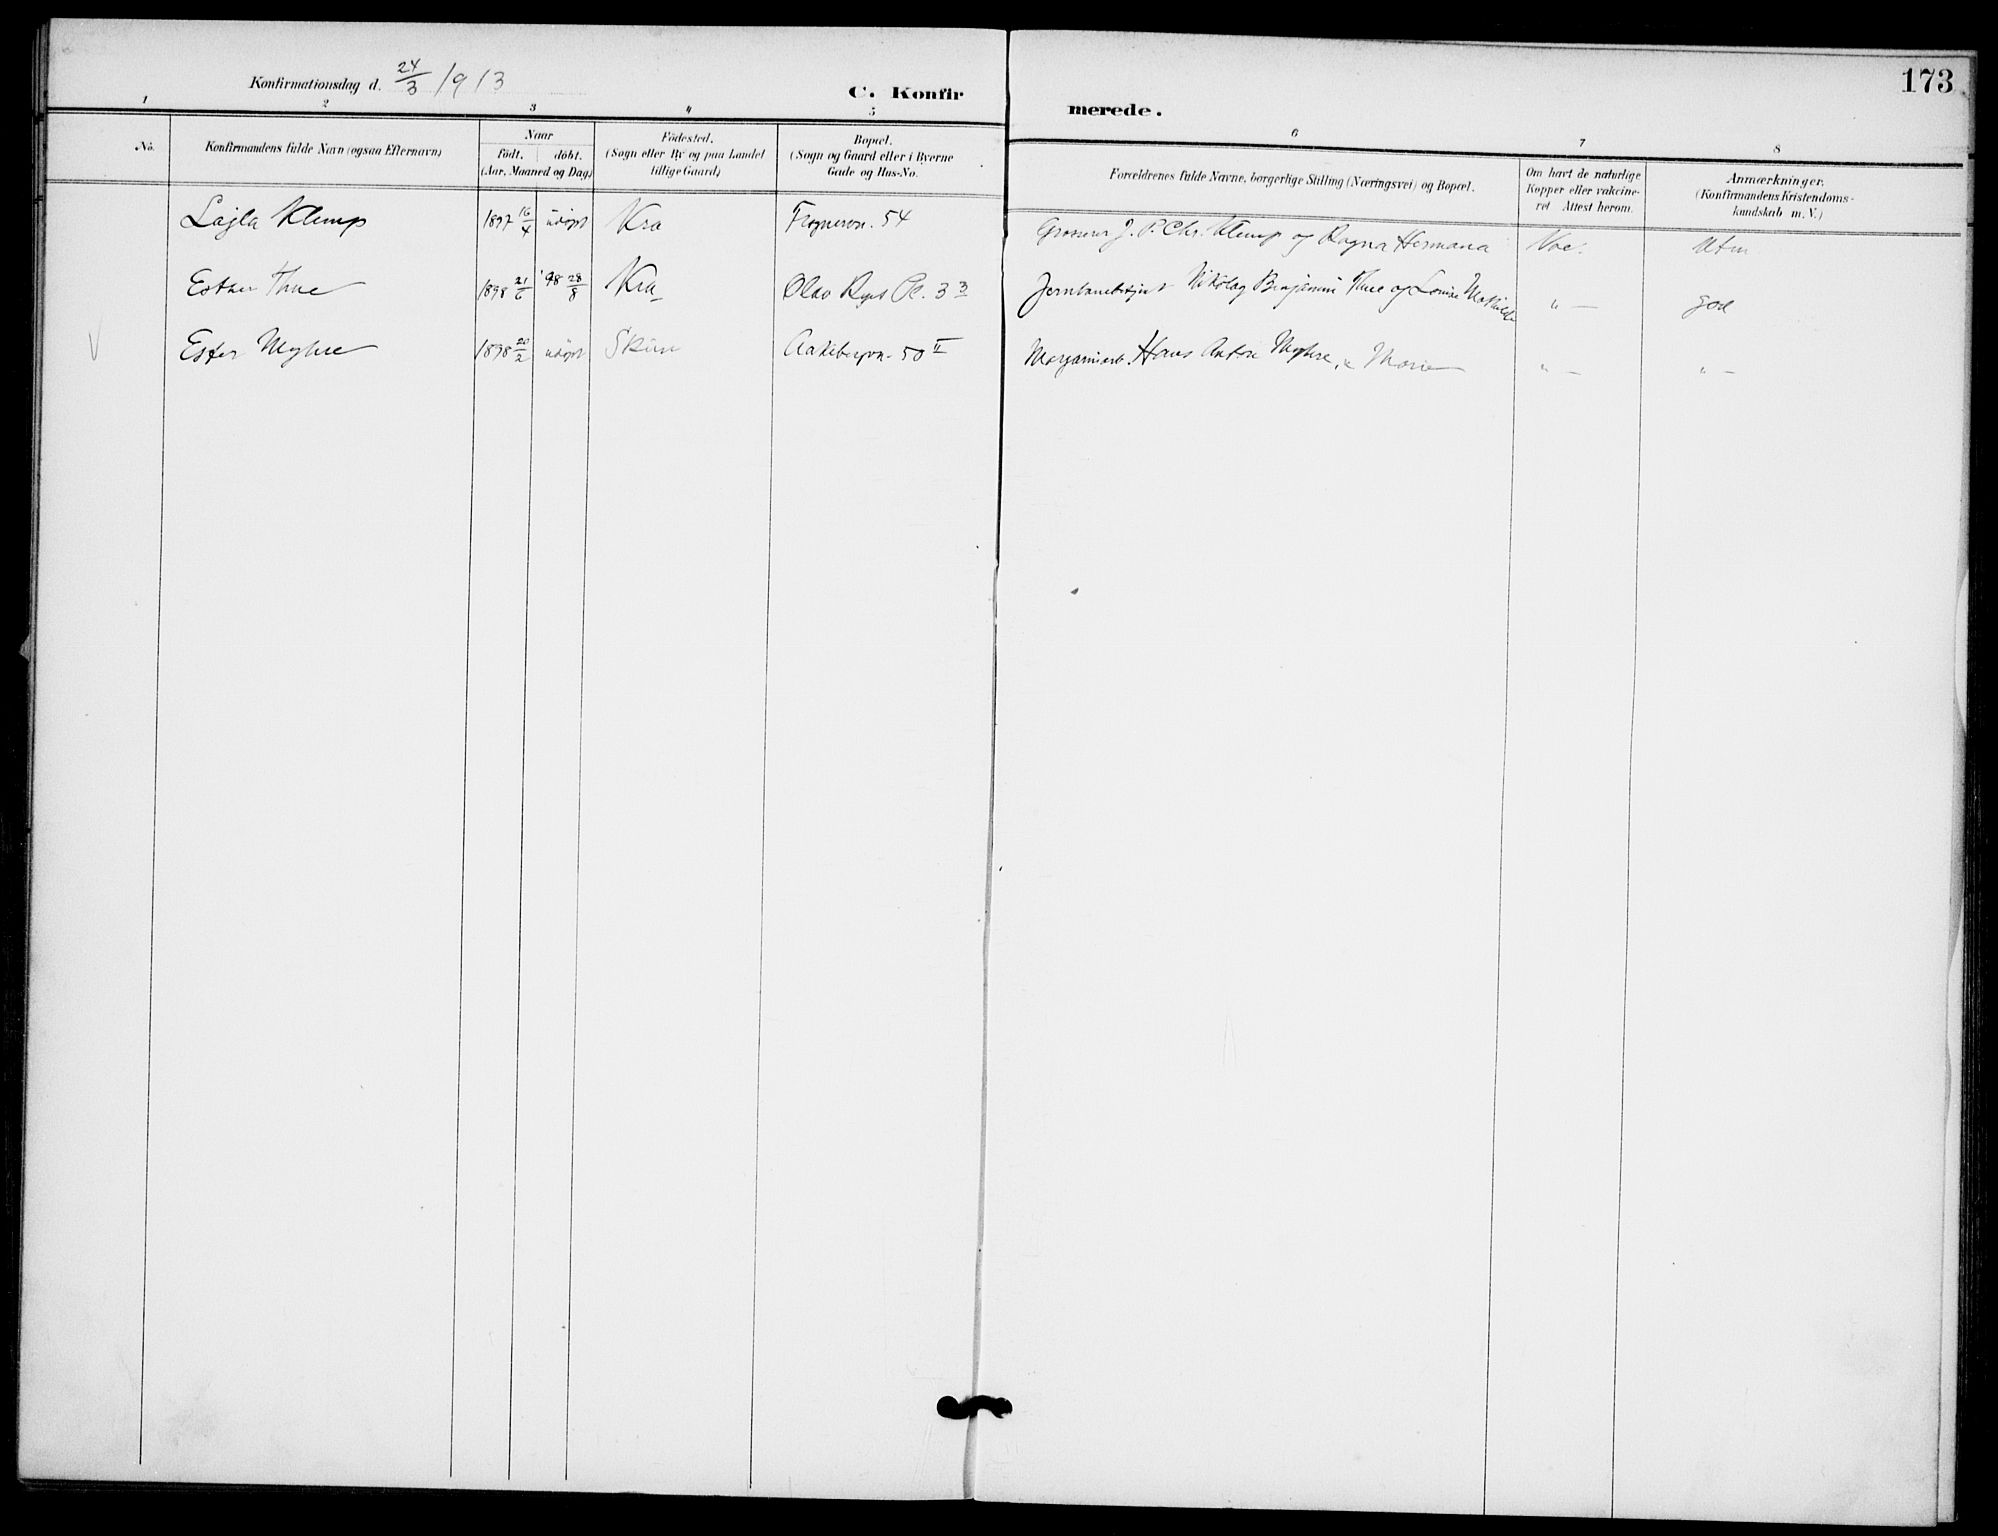 173
Konfirmationsdag d. 24/3 1913
C. Konfirmerede.
1 2 3 4 5 6 7 8
No.
Konfirmandens fulde Navn (ogsaa Efternavn)
Naar
födt. döbt.
(Aar, Maaned og Dag)
Födested.
(Sogn eller By og paa Landet
tillige Gaard)
Bopæl.
(Sogn og Gaard eller i Byerne
Gade og Hus-No.
Forældrenes fulde Navne, borgerlige Stilling (Næringsvei) og Bopæl.
Om havt de naturlige
Kopper eller vakcine-
ret Attest herom.
Anmærkninger.
(Konfirmandens Kristendoms-
kundskab m. V.)
Lajla Klemp 1897 16/4 udöpt Kra Frognerv. 54 Grosserer J. P. Chr. Klemp og Ragna Hermana Vac.
Esther Thue 1898 21/6 '98 28/8 Kra Olav Ryes Pl. 3 3 Nikolag Benjamin Thue og Louise Mathilde " — god
Ester Myhre 1898 20/2 udöpt Aakebergv. 50 II Hans Anton Myhre, & Marie " — " —